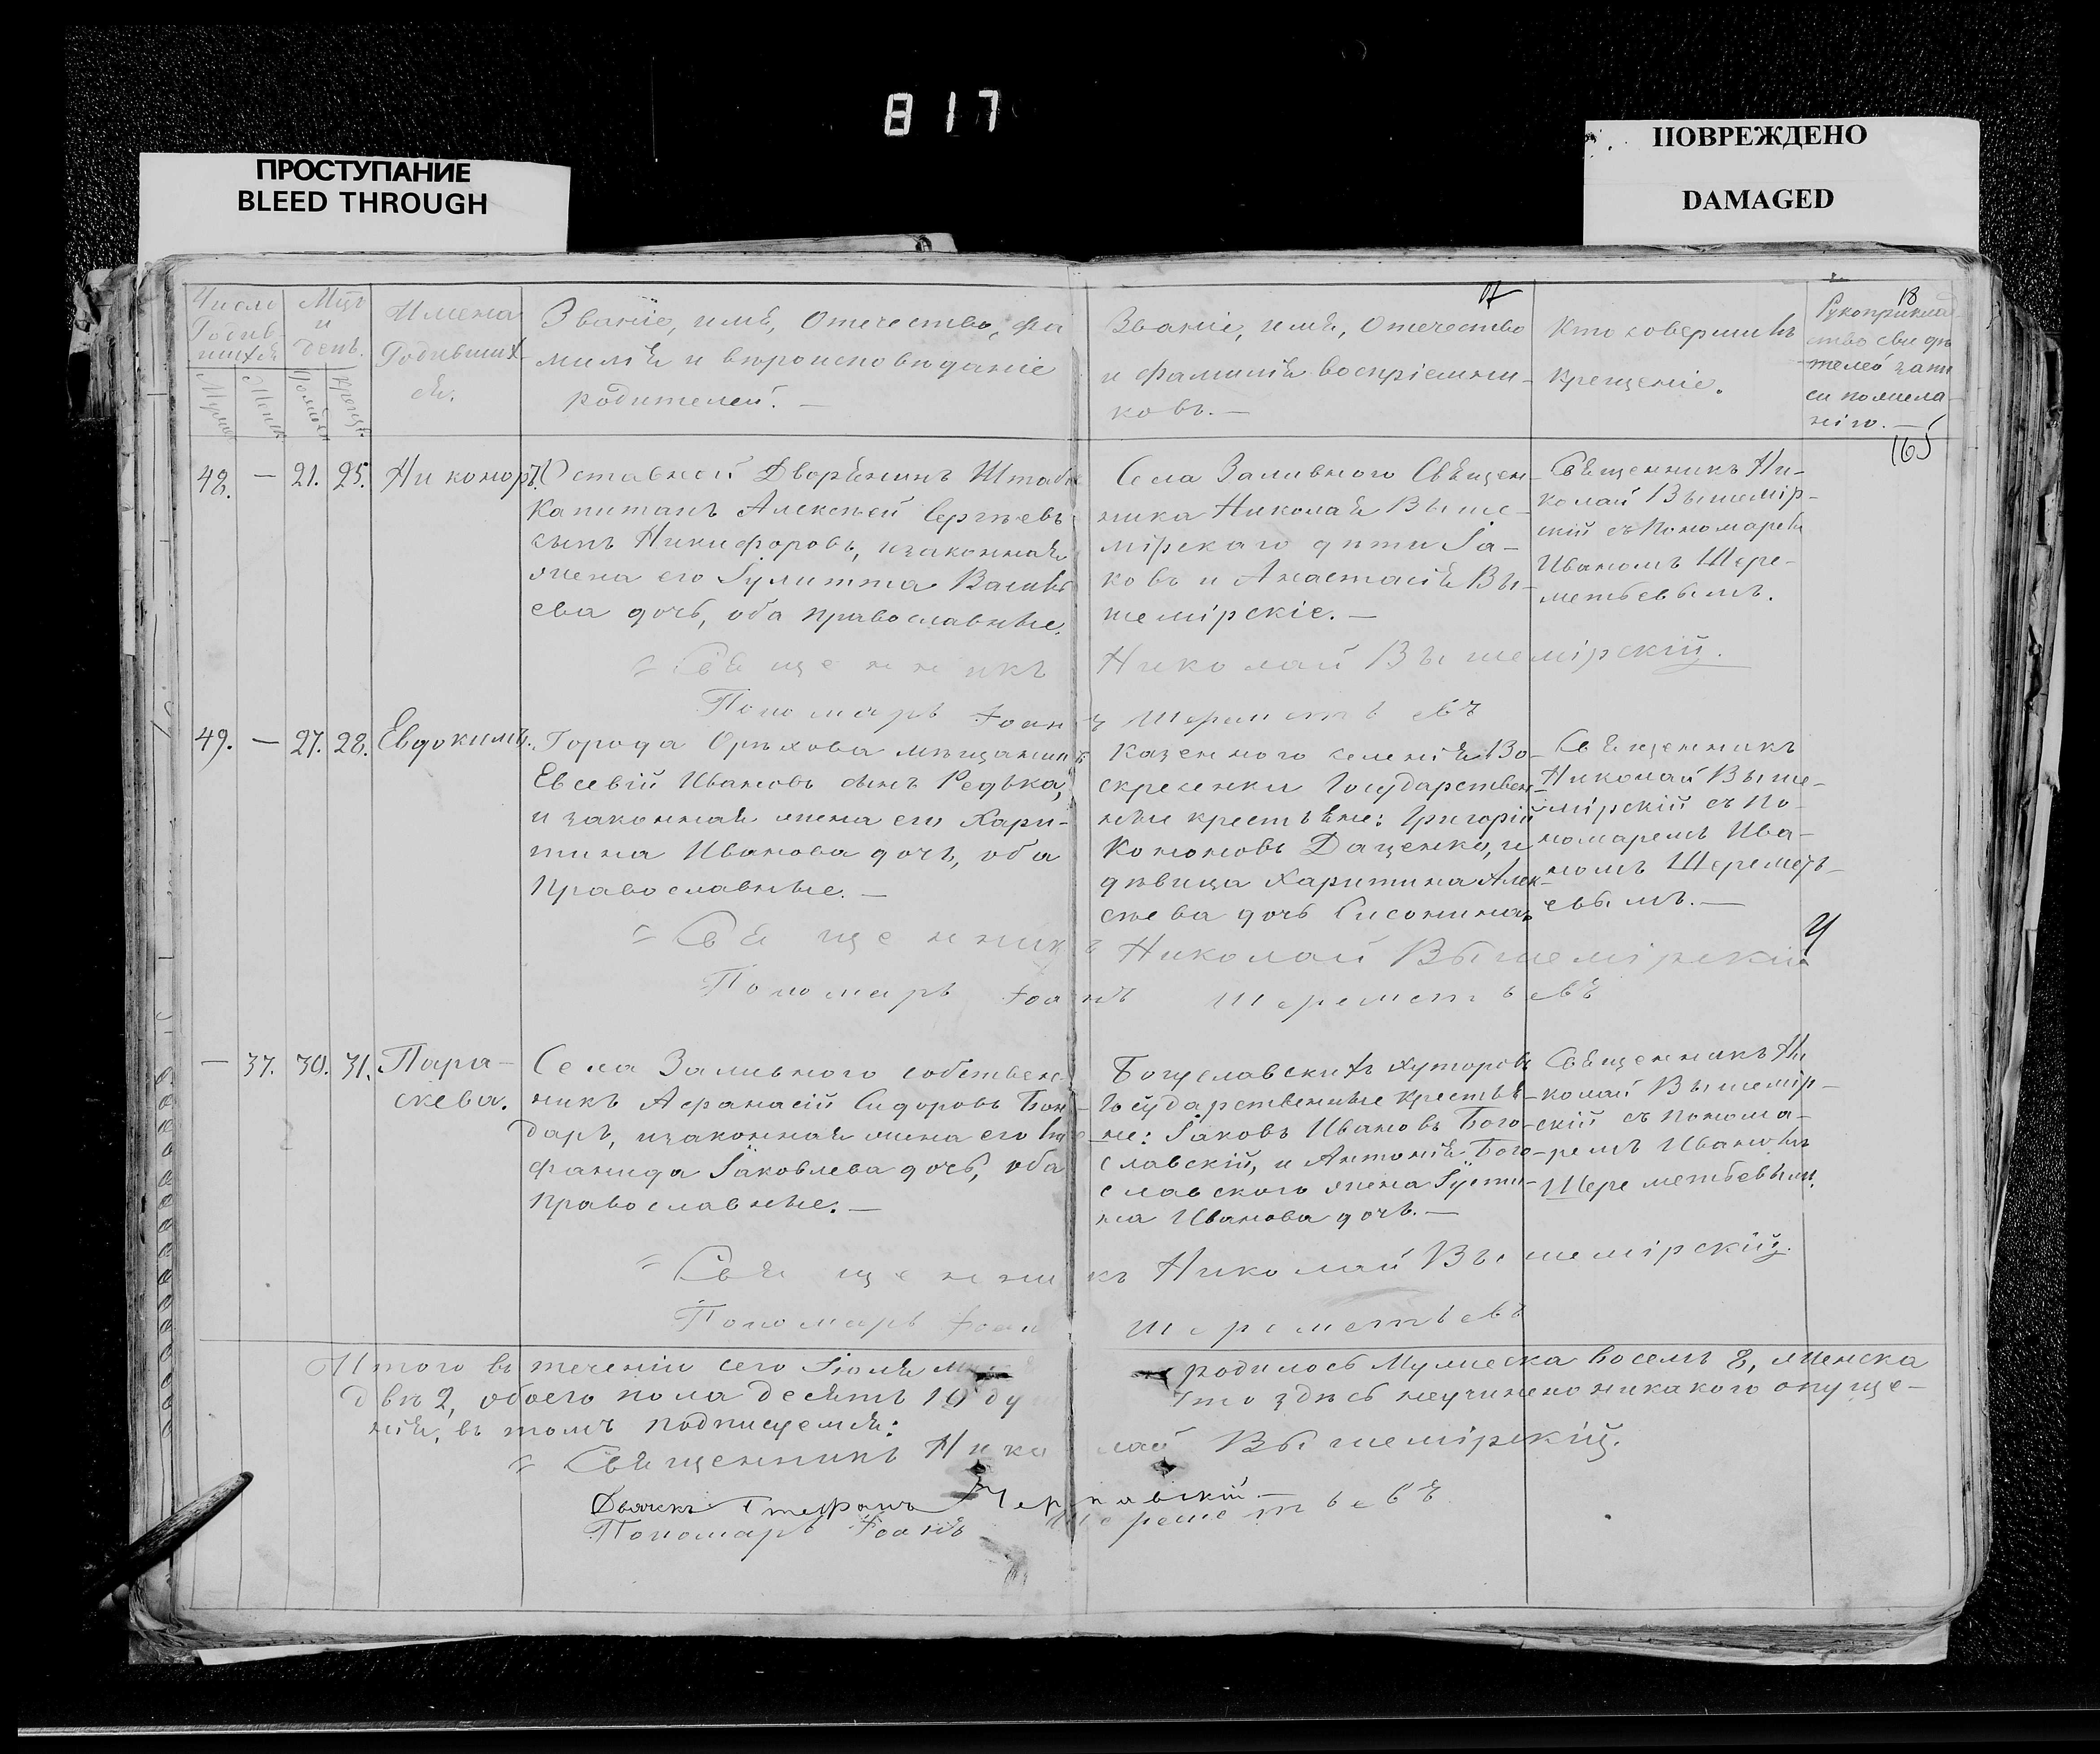 817
ПРОСТУПАНИЕ
BLEED THROUGH
ПОВРЕЖДЕНО
DAMAGED
17
18
165
Число
Родив-
шихся
Мцъ
и
день.
Имена
Родивших-
ся.
Званіе, имя, Отечество, фа
милія и вѣроисповѣданіе
родителей. —
Званіе, имя, Отечество
и фамилія воспріемни-
ковъ. —
Кто совершилъ
крещеніе.
Рукоприклад
ство свидѣ
телей запи
си по жела-
нію. —
48. — 21. 25. Никоноръ.
Отставной Дворянинъ Штабъ
Капитанъ Алексѣй Сергѣевъ
сынъ Никифоровъ, и законная
жена его Іулитта Василь
ева дочь, оба православные.
Села Заливного Священ-
ника Николая Выше-
мірскаго дѣти Іа-
ковъ и Анастасія Вы-
шемірскіе. —
Священникъ Ни-
колай Вышемір-
скій съ Пономаремъ
Иваномъ Шере-
метьевымъ.
Священникъ Николай Вышемірскій.
Пономарь Іоаннъ Шереметьевъ
49. — 27. 28. Евдокимъ.
Города Орѣхова мѣщанинъ
Евсевій Ивановъ сынъ Редька,
и законная жена его Хари-
тина Иванова дочь, оба
православные. —
Казенного селенія Во-
скресенки Государствен-
ные крестьяне: Григорій
Кононовъ Даценко, и
дѣвица Харитина Алек-
сѣева дочь
Священникъ
Николай Выше-
мірскій съ По-
номаремъ Ива-
номъ Шереметь-
евымъ. —
Священникъ Николай Вышемірскій
Пономарь Іоаннъ Шереметьевъ
— 37. 30. 31. Пара-
скева.
Села Заливного собствен-
никъ Афанасій Сидоровъ Бон-
дарь, и законная жена его
Іаковлева дочь, оба
православные. —
Богуславскихъ хуторовъ
Государственные крестья-
не: Іаковъ Ивановъ Бого-
славскій, и Антонія Бого-
славского жена Іусти-
на Иванова дочь. —
Священникъ Ни
колай Вышемір-
скій съ понома-
ремъ Иваномъ
Шереметьевымъ.
Священникъ Николай Вышемірскій.
Пономарь Іоаннъ Шереметьевъ
Итого въ теченіи сего Іюля родилось Мужеска восемь 8, женска
двѣ 2, обоего пола десять 10 душ Что здѣсь неучинено никакого опуще-
нія, въ томъ подписуемся:
Священникъ Николай Вышемірскій.
Дьячекъ Стефанъ Чернявскій —
Пономарь Іоаннъ Шереметьевъ